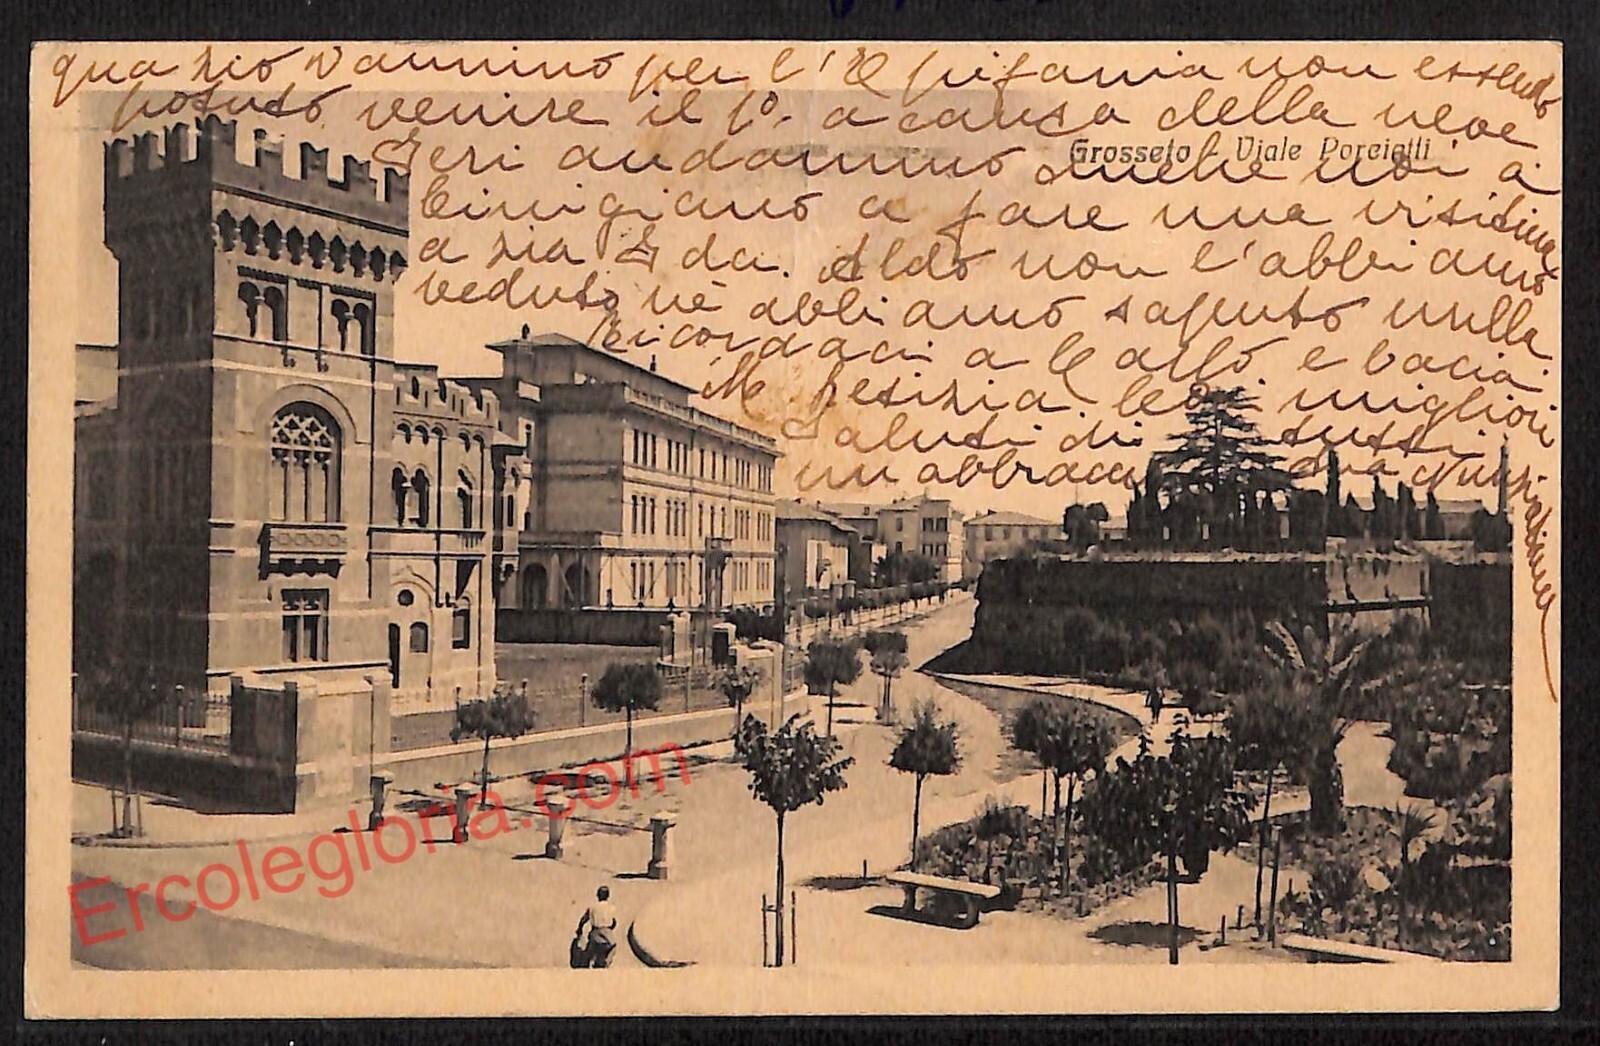 qua zio Vannino per l'Epifania non essendo
potuto venire il 1º, a causa della neve
Ieri andammo anche noi a
Cinigiano a fare una visitina
a zia Ida. Aldo non l'abbiamo
veduto nè abbiamo saputo nulla
Ricordaci a Carlo e bacia
M. Letizia. Coi migliori
saluti di tutti
un abbraccio dua Nunziatina
Grosseto Viale Porciatti
Ercolegloria.com